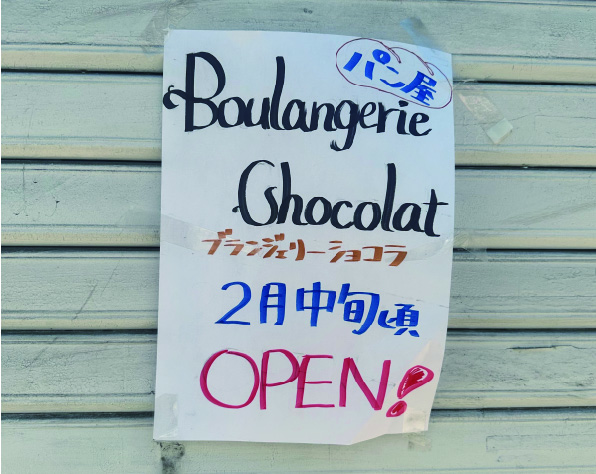 パン屋
Boulangerie
Chocolat
ブランジェリーショコラ
2月中旬頃
OPEN!